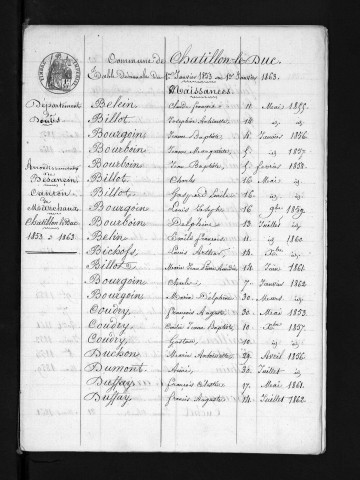 Commune de Chatillon-le-Duc.
Table Décennale du 1er Janvier 1853 au 1er Janvier 1863.
Naissances
Département
du
Doubs
Arrondissement
de
Besançon
Canton
de
Marchaux
Chatillon le Duc
1853 à 1863
Belin Claude françois 11 Mai 1855.
Billot Joséphine 12 id id
Bourgoin Jeanne Baptiste Janvier 1856
Bourboin Jeanne Marguerite 5 id
Bourboin Jean Baptiste 5 février 1858.
Billot Charles 16 Mai id
Billot Gaspard Emile 12 id id
Bourgoin Louis 16 9bre 1859
Bourboin Delphine 13 Juillet id
Belin Emile françois 11 id 1860
Bichofs Louis 14 id
Billot Marie 14 Juin 1861
Bourgoin Charles 7 Janvier 1862
Bourgoin Marie Delphine 30 Mars id
Coudry françois Auguste 30 Mai 1853
Coudry Jeanne Baptiste 10 Xbre 1857
Coudry Gustave 10 id id
Duchon Marie 29 Avril 1856
Dumont Aimé 30 Juillet id
Duffay françois 17 Mai 1861.
Duffay francis Auguste 14 Juillet 1862.